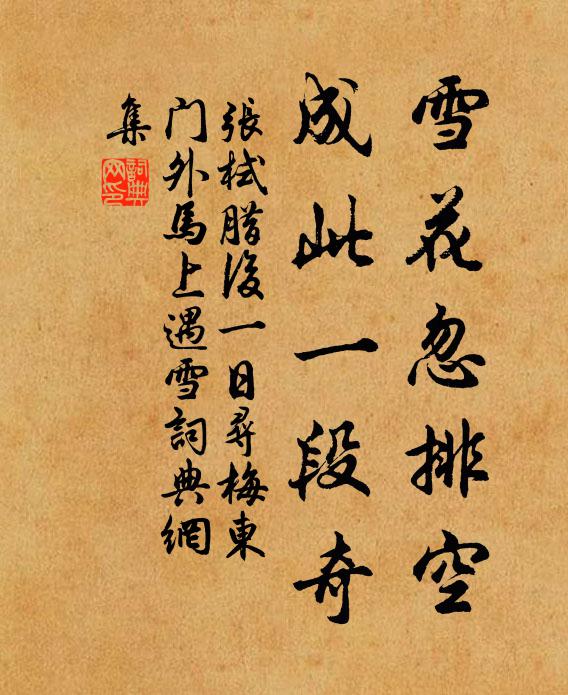 雪花忽排空
成此一段奇
張栻腊後一日尋梅東
门外馬上遇雪詞典網
集
詞典
网印